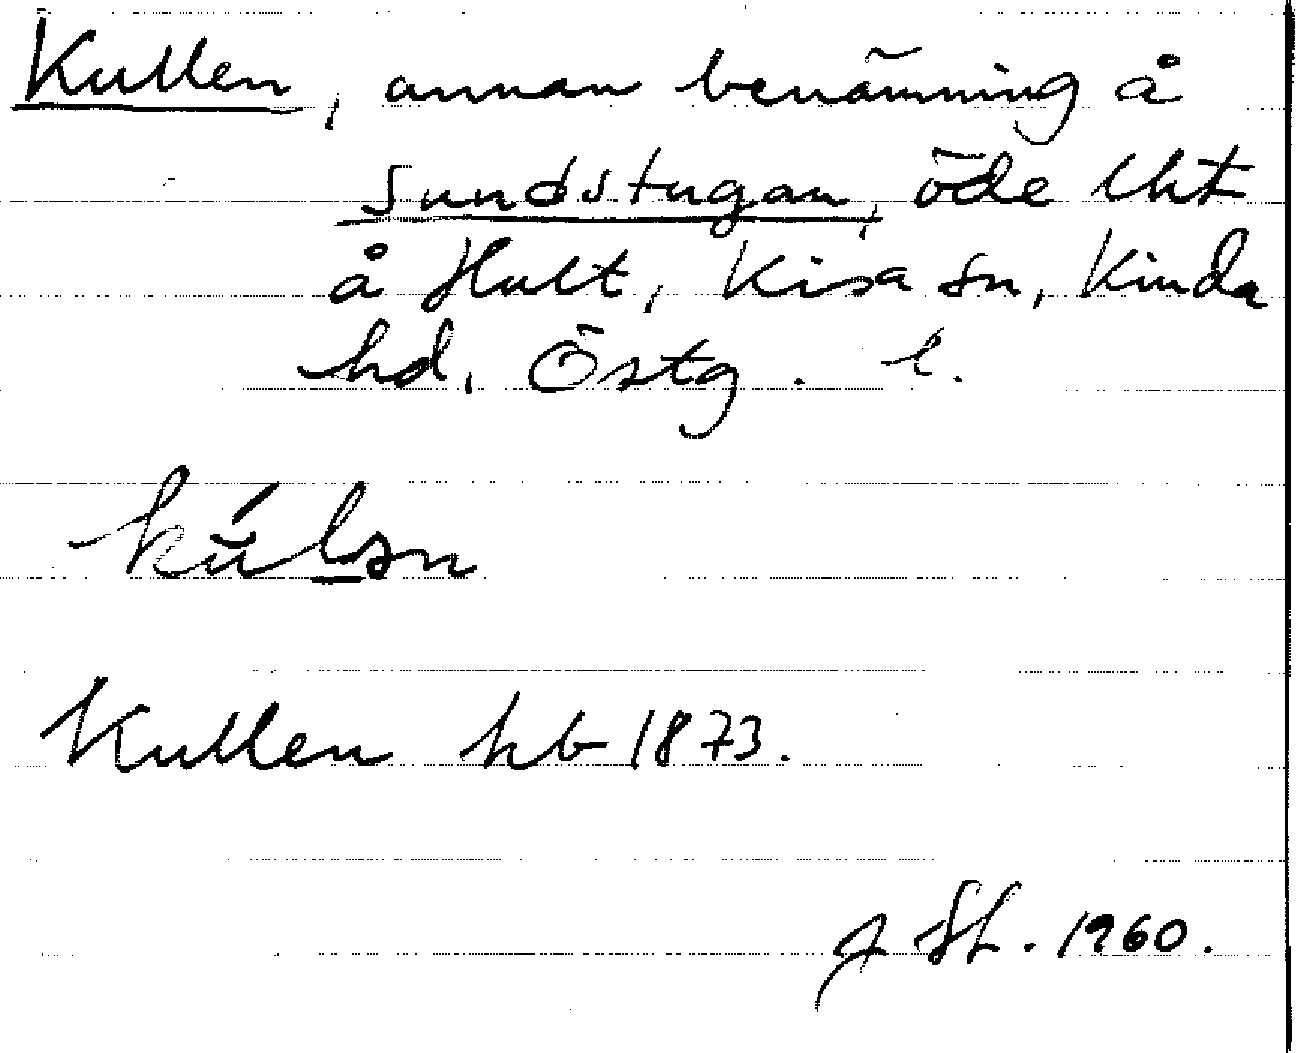 Kullen, annan benämning å
Sundstugan, öde lht
å Hult, Kisa sn, Kinda
hd, Östg. l.
Kullen hb 1873.
1960.